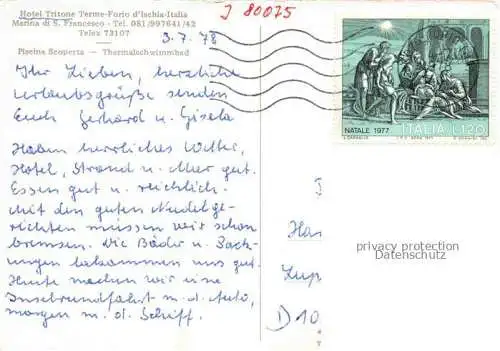 Hotel Tritone Terme-Forio d'Ischia-Italia
Marina di S. Francesco - Tel. 081/997641/42
Telex 73107
J 80075
3.7.78
Piscina Scoperta — Thermalschwimmbad
Ihr Lieben, herzliche
Urlaubsgrüße senden
Euch Gerhard u. Gisela
Haben herrliches Wetter,
Hotel, Strand u. Meer gut.
Essen gut u. reichlich.
Mit den guten Nudelge-
richten müssen wir schon
bremsen. Die Bäder u. Pack-
ungen bekommen uns gut.
Heute machen wir eine
Inselrundfahrt m. d. Auto,
morgen m. d. Schiff.
NATALE 1977 ITALIA L.120
Han
privacy protection
Datenschutz
Kup
D 10